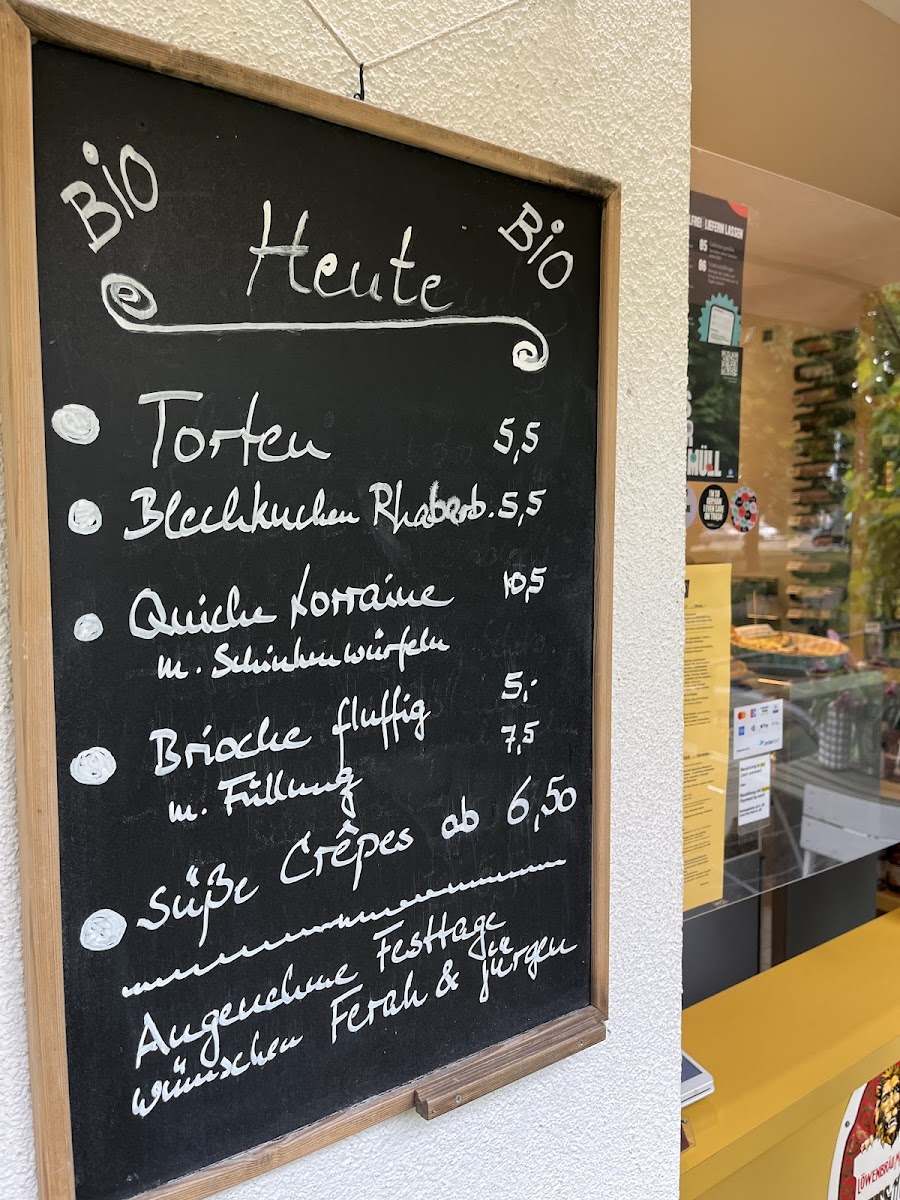 BiO
BiO
Heute
Torten 5,5
Blechkuchen Rhabarb. 5,5
Quiche Lorraine 10,5
m. Schinkenwürfeln
Brioche fluffig 5,-
m. Füllung 7,5
süße Crêpes ab 6,50
Angenehme Festtage
wünschen Ferah & Jürgen
LIEFERN LASSEN
05
06
MÜLL
LÖWENBRÄU